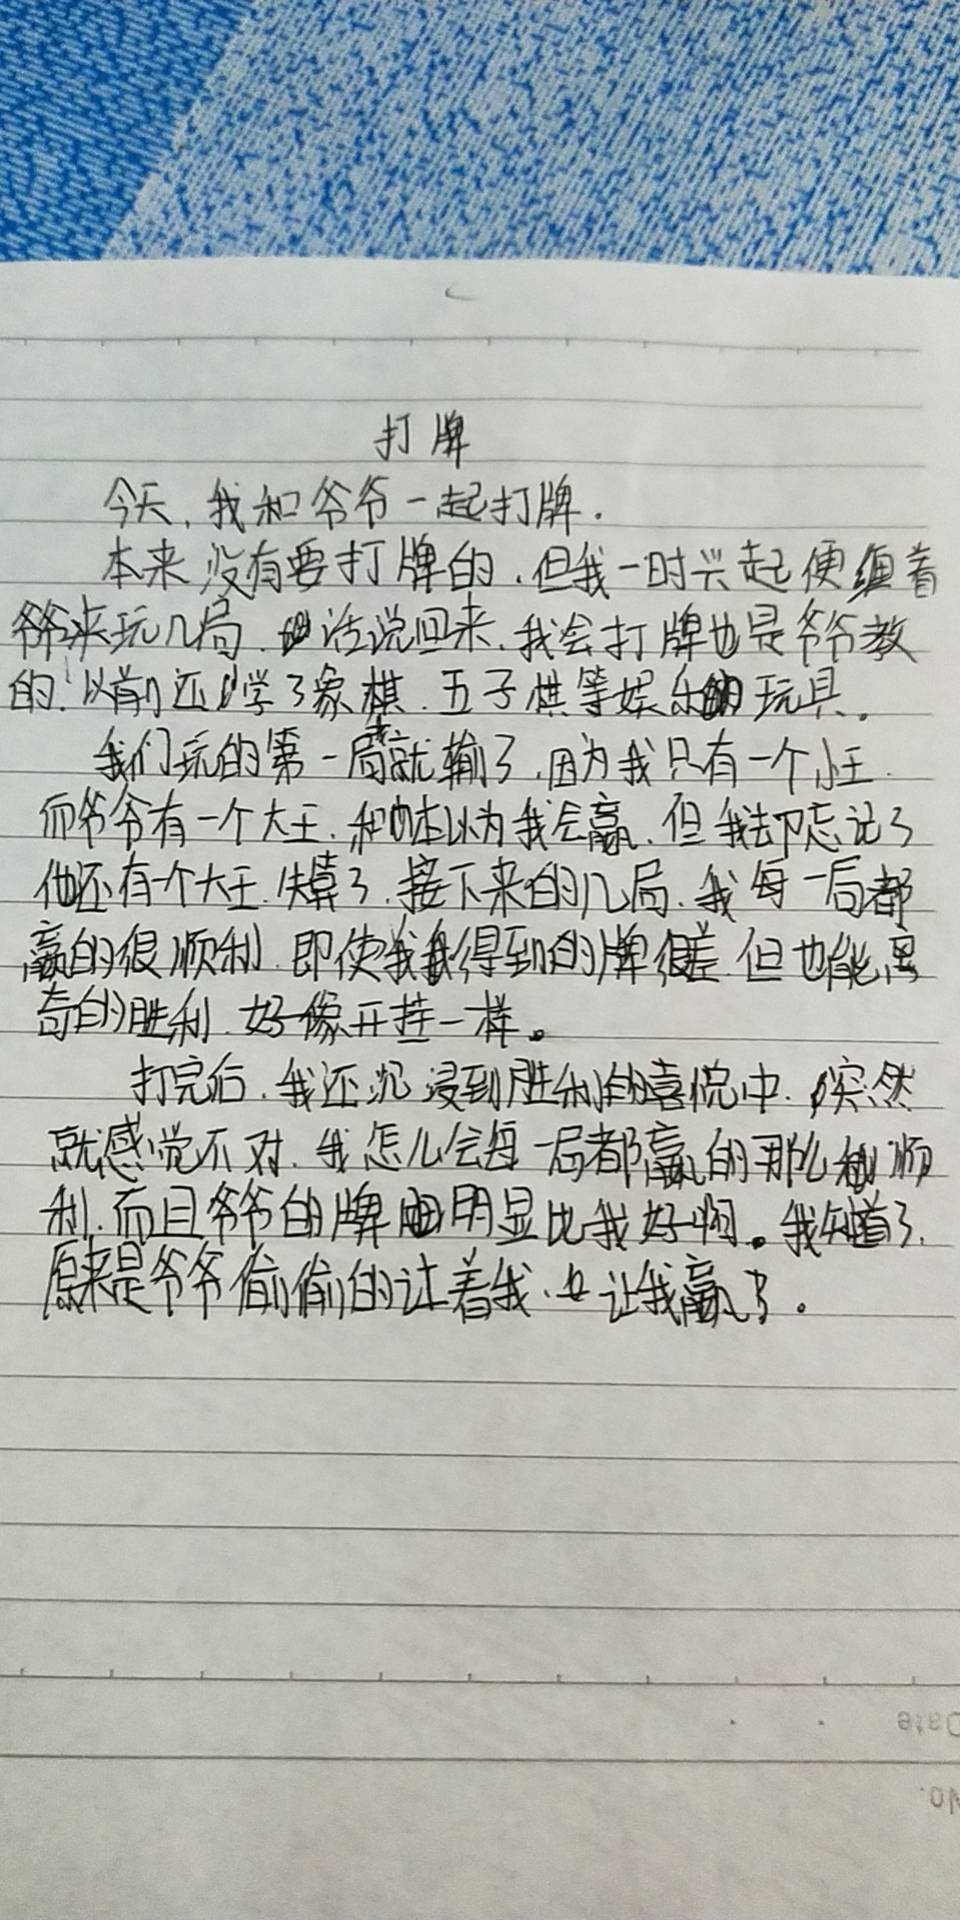 打牌
今天,我和爷爷一起打牌.
本来没有要打牌的,但我一时兴起便缠着
爷爷来玩几局.话说回来,我会打牌也是爷爷教
的.以前还学了象棋.五子棋等娱乐的玩具。
我们玩的第一局我就输了,因为我只有一个小王.
而爷爷有一个大王.本以为我会赢.但我却忘记了
他还有一个大王.失算了.接下来的几局.我每一局都
赢的很顺利.即使我得到的牌很差.但也能离
奇的胜利.好像开挂一样。
打完后.我还沉浸到胜利的喜悦中.突然
就感觉不对.我怎么会每一局都赢的那么顺
利.而且爷爷的牌明显比我好啊。我知道了.
原来是爷爷偷偷的让着我.让我赢了.
Date
No.